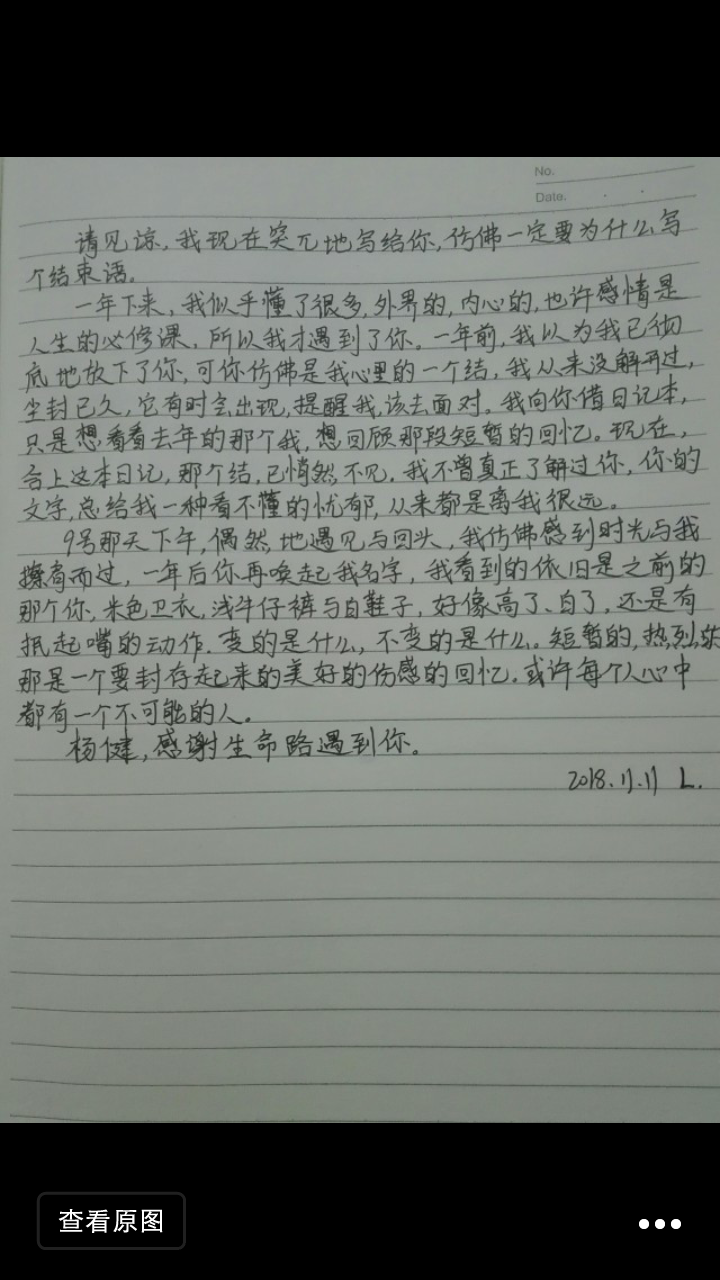 No.
Date.
请见谅,我现在突兀地写给你,仿佛一定要为什么写
个结束语。
一年下来,我似乎懂了很多,外界的,内心的,也许感情是
人生的必修课,所以我才遇到了你。一年前,我以为我已彻
底地放下了你,可你仿佛是我心里的一个结,我从来没解开过,
尘封已久,它有时会出现,提醒我,该去面对。我向你借日记本,
只是想看看去年的那个我,想回顾那段短暂的回忆。现在,
合上这本日记,那个结,已悄然不见。我不曾真正了解过你,你的
文字,总给我一种看不懂的忧郁,从来都是离我很远。
9号那天下午,偶然地遇见与回头,我仿佛感到时光与我
擦肩而过,一年后你再唤起我名字,我看到的依旧是之前的
那个你,米色卫衣,浅牛仔裤与白鞋子,好像高了、白了,还是有
抿起嘴的动作。变的是什么,不变的是什么。短暂的,热烈的
那是一个要封存起来的美好的伤感的回忆。或许每个人心中
都有一个不可能的人。
杨健,感谢生命路遇到你。
2018.11.11 L.
查看原图